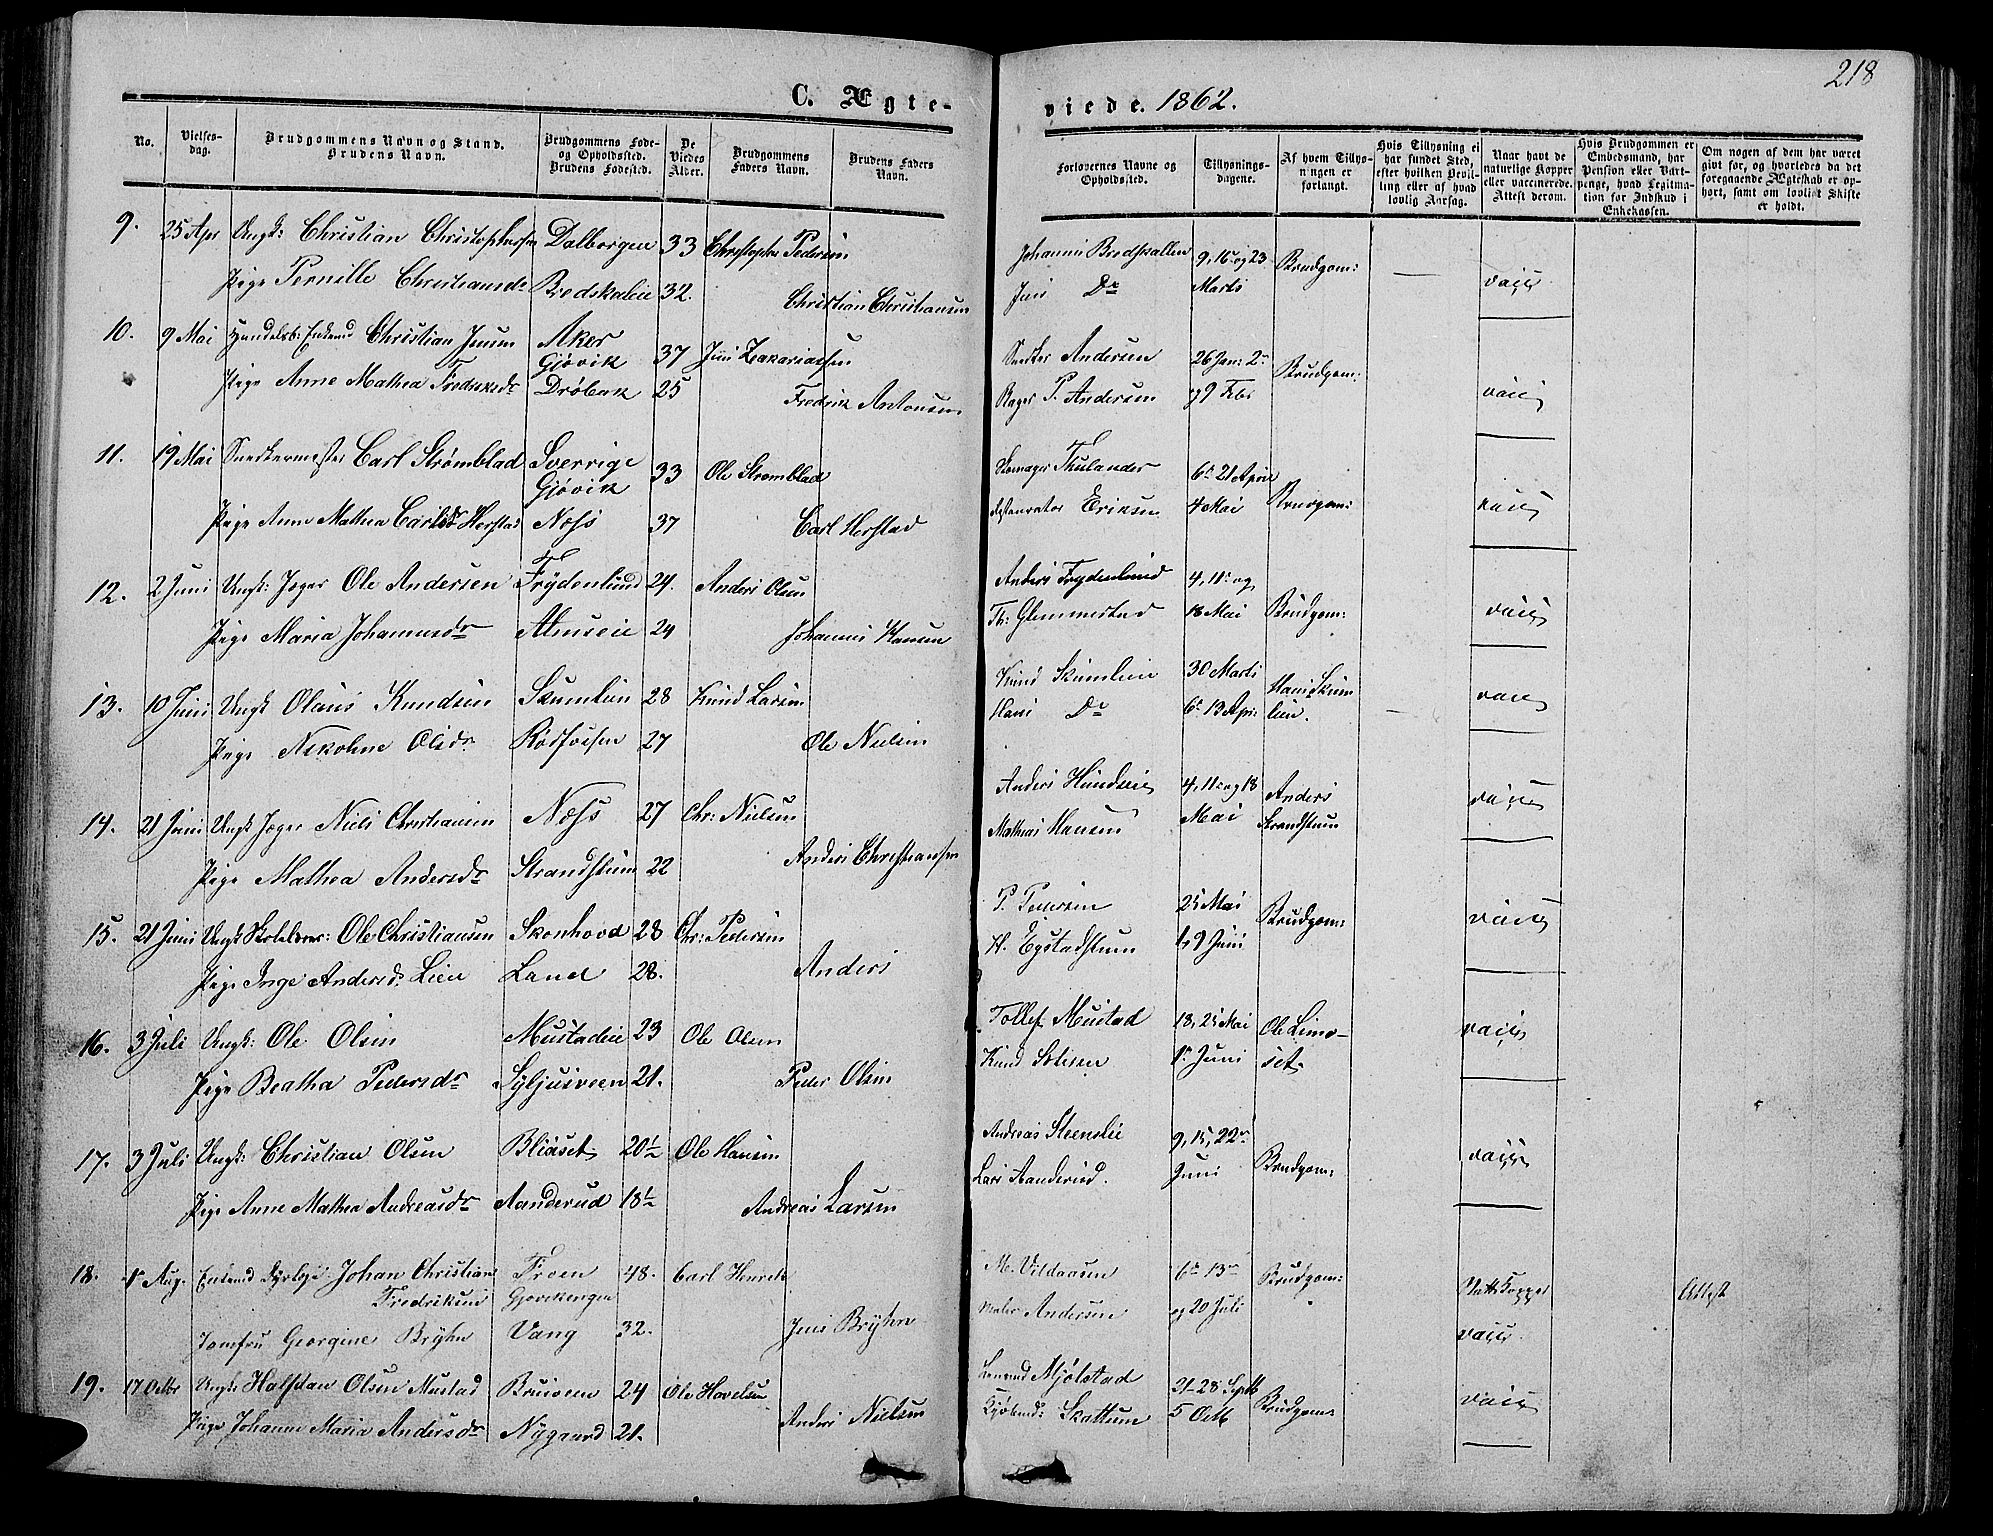 218
C. Ægte-
viede. 1862.
No.
Vielses-
dag.
Brudgommens Navn og Stand.
Brudens Navn.
Brudgommens Føde-
og Opholdssted.
Brudens Fødested.
De
Viedes
Alder.
Brudgommens
Faders Navn.
Brudens Faders
Navn.
Forlovernes Navne og
Opholdssted.
Tillysnings-
dagene.
Af hvem Tillys-
ningen er
forlangt.
Hvis Tillysning ei
har fundet Sted,
efter hvilken Bevil-
ling eller af hvad
lovlig Aarsag.
Naar havt de
naturlige Kopper
eller vaccinerede.
Attest derom.
Hvis Brudgommen er
Embedsmand, har
Pension eller Vart-
penge, hvad Legitima-
tion for Indskud i
Enkekassen.
Om nogen af dem har været
givt før, og hvorledes da det
foregaaende Ægteskab er op-
hørt, samt om lovligt Skifte
er holdt.
9. 25 Apr Ungk: Christian Christophersen Dalborgen 33 Christopher Pedersen Johannes Brodskallen 9, 16 og 23 Brudgom:
Pige Pernille Christiansdr Brodskaleie 32. Christian Christiansen Jens Do Marts vacc
10. 9 Mai Handelsb: Enkemd Christian Jensen Aker
Gjøvik 37 Jens Zakariassen Snedker Andersen 26 Jan: 2n Brudgom:
Pige Anne Mathea Fredriksdr Drøbak 25 Fredrik Antonsen Bager P. Andersen og 9 Febr vacc
11. 19 Mai Snedkermester Carl Strømblad Sverrige
Gjøvik 33 Ole Strømblad Skomager Thulander 6, 21 April
Pige Anne Mathea Carlsdr Herstad Næss 37 Carl Herstad Restauratør Eriksen 4 Mai Brudgom: vacc
12. 2 Juni Ungk: Jæger Ole Andersen Frydenlund 24. Anders Olsen Anders Frydenlund 4, 11 og
Pige Maria Johannesdr Almseie 24 Johannes Hansen Th: Glemmestad 18 Mai Brudgom: vacc
13. 10 Juni Ungk Olaus Knudsen Skumlien 28 Knud Larsen Knud Skumlien 30 Marts Hans Skum
lien. vacc
Pige Nikoline Olsdr Rødfossen 27 Ole Nielsen Hans Do 6, 13 Apr:
14. 21 Juni Ungk Jæger Niels Christiansen Næss 27 Chr: Nielsen Anders Hundseie 4, 11 og 18 Anders
Pige Mathea Andersdr Strandstuen 22 Anders Christiansen Mathias Hansen Mai Strandstuen vacc
15. 21 Juni Ungk Skolelærer: Ole Christiansen Skonhovd 28 Chr: Pedersen P. Pedersen 25 Mai Brudgom:
Pige Inge Andersd. Lien Land 28. Anders H. Egstadstuen 1, 9 Juni vacc
16. 3 Juli Ungk: Ole Olsen Mustadeie 23 Ole Olsen Tollef Mustad 18, 25 Mai Ole Limo-
set vacc
Pige Beatha Pedersdr Syljusveen 21. Peder Olsen Knud 1n Juni
17. 3 Juli Ungk: Christian Olsen Bliaset 20½ Ole Hansen Andreas Steenslie 9, 15, 22n
Pige Anne Mathea Andreasdr Aanderud 18½ Andreas Larsen Lars Aanderud. Juni Brudgom: vacc
18. 1n Aug. Enkemd Dyrlæge Johan Christian
Fredriksen Froen
Gjøvikengen 48. Carl Henrik M. Vildaasen 6n 13n Brudgom: Natt: Kopper Attest
Jomfru Georgine Bryhn Vang 32. Jens Bryhn Maler Andersen og 20 Juli vacc.
19. 17 Octbr Ungk: Halfdan Olsen Mustad Bruiveen 24 Ole Hovelsen Lensmd Mjølstad 21-28 Septb Brudgom:
Pige Johanne Maria Andersdr Nygaard 21. Anders Nielsen Kjøbmd: Skattum 5 Octb vacc